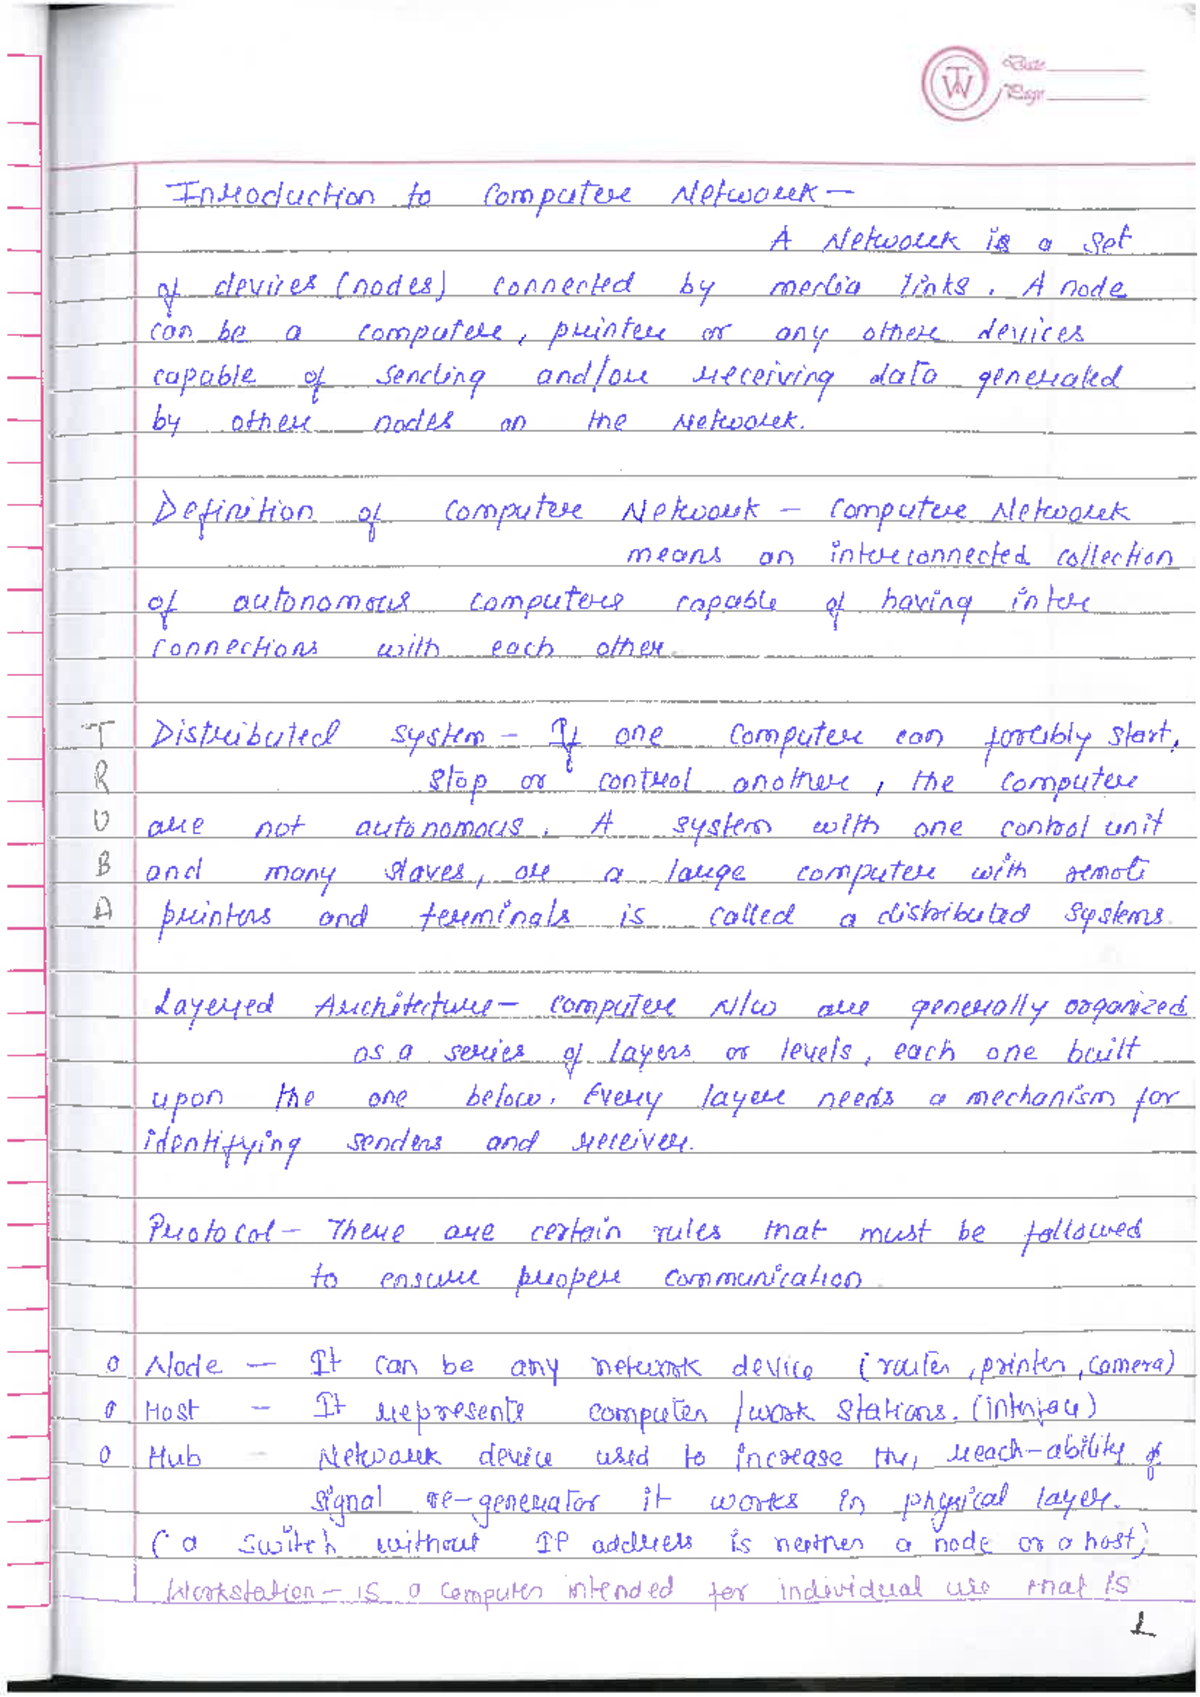 TW
Date
Page
Introduction to Computer Network -
A Network is a set
of devices (nodes) connected by media links. A node
can be a computer, printer or any other devices
capable of sending and/or receiving data generated
by other nodes on the Network.
Definition of Computer Network - Computer Network
means an interconnected collection
of autonomous computers capable of having inter
connections with each other.
Distributed system - If one computer can forcibly start,
stop or control another, the computer
are not autonomous. A system with one control unit
and many slaves, or a large computer with remote
printers and terminals is called a distributed systems.
T
R
U
B
A
Layered Architecture - Computer N/W are generally organized
as a series of layers or levels, each one built
upon the one below. Every layer needs a mechanism for
identifying senders and receiver.
Protocol - There are certain rules that must be followed
to ensure proper communication
o Node - It can be any network device (router, printer, camera)
o Host - It represents computer / work stations. (interface)
o Hub - Network device used to increase the, reach-ability of
signal re-generator it works in physical layer.
(a switch without IP address is neither a node or a host)
Workstation - is a computer intended for individual use that is
1